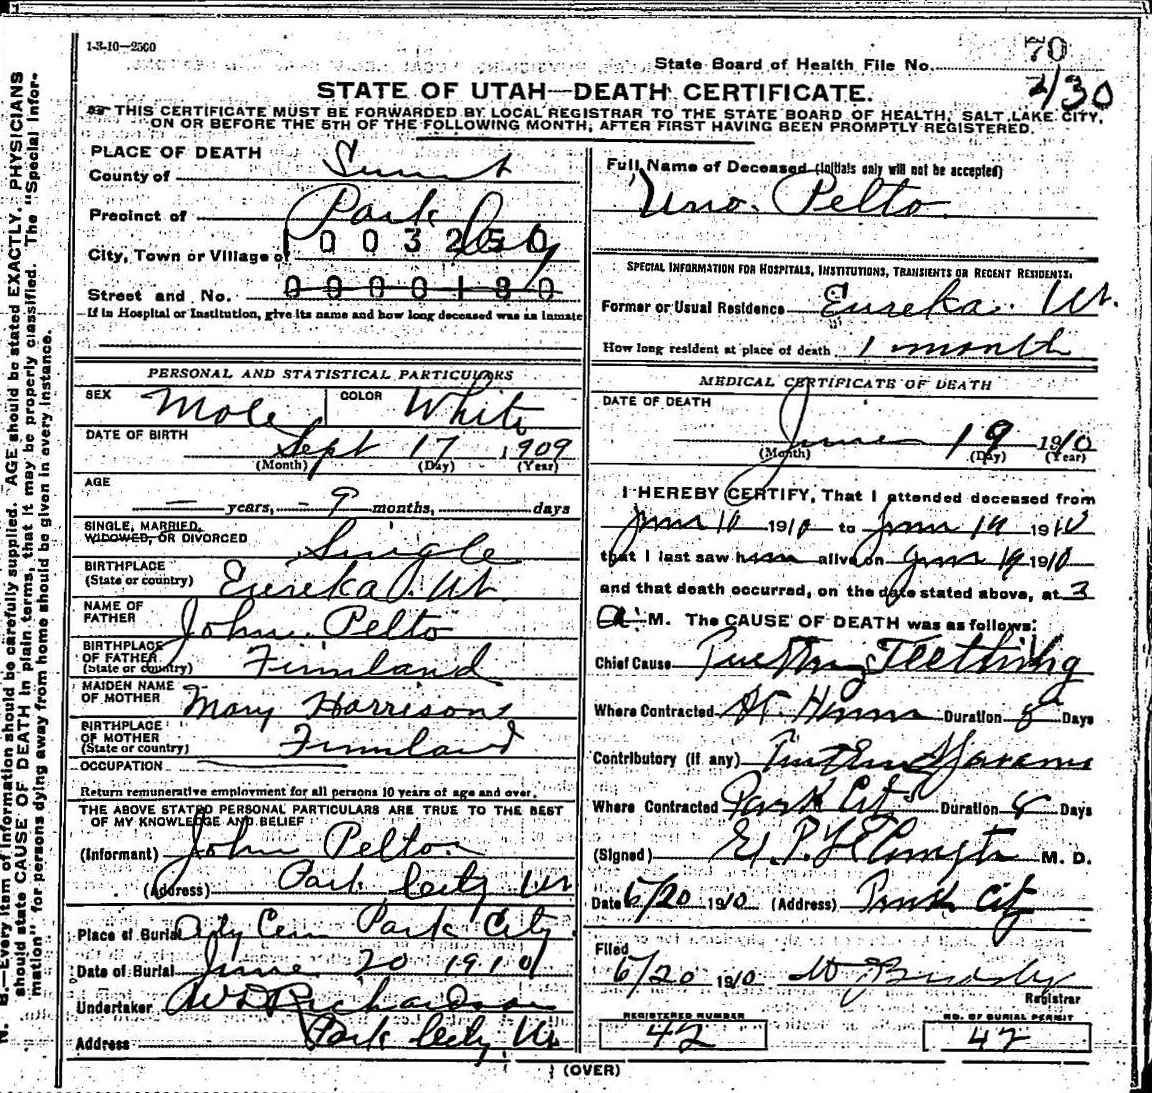 1-3-10—2500
70
State Board of Health File No.
2/30
STATE OF UTAH—DEATH CERTIFICATE.
THIS CERTIFICATE MUST BE FORWARDED BY LOCAL REGISTRAR TO THE STATE BOARD OF HEALTH, SALT LAKE CITY,
ON OR BEFORE THE 5TH OF THE FOLLOWING MONTH, AFTER FIRST HAVING BEEN PROMPTLY REGISTERED.
N. B.—Every item of information should be carefully supplied. AGE should be stated EXACTLY. PHYSICIANS
should state CAUSE OF DEATH in plain terms, that it may be properly classified. The "Special Infor-
mation" for persons dying away from home should be given in every instance.
PLACE OF DEATH
County of Summit
Precinct of Park City
1003250
City, Town or Village of
Street and No. 0000180
If in Hospital or Institution, give its name and how long deceased was an inmate
PERSONAL AND STATISTICAL PARTICULARS
SEX Male COLOR White
DATE OF BIRTH Sept 17 1909
(Month) (Day) (Year)
AGE
— years, 9 months, days
SINGLE, MARRIED,
WIDOWED, OR DIVORCED Single
BIRTHPLACE
(State or country) Eureka, Ut.
NAME OF
FATHER John Pelto
BIRTHPLACE
OF FATHER
(State or country) Finnland
MAIDEN NAME
OF MOTHER Mary Harrison
BIRTHPLACE
OF MOTHER
(State or country) Finnland
OCCUPATION
Return remunerative employment for all persons 10 years of age and over.
THE ABOVE STATED PERSONAL PARTICULARS ARE TRUE TO THE BEST
OF MY KNOWLEDGE AND BELIEF
(Informant) John Pelto
(Address) Park City Ut
Place of Burial City Cem Park City
Date of Burial June 20 1910
Undertaker Richardson
Address Park City, Ut
Full Name of Deceased (initials only will not be accepted)
Uno. Pelto
SPECIAL INFORMATION FOR HOSPITALS, INSTITUTIONS, TRANSIENTS OR RECENT RESIDENTS.
Former or Usual Residence Eureka. Ut.
How long resident at place of death 1 month
MEDICAL CERTIFICATE OF DEATH
DATE OF DEATH
June 19 1910
(Month) (Day) (Year)
I HEREBY CERTIFY, That I attended deceased from
June 10 1910 to June 19 1910
that I last saw him alive on June 19 1910
and that death occurred, on the date stated above, at 3
a. M. The CAUSE OF DEATH was as follows:
Chief Cause Teething
Where Contracted Duration 8 Days
Contributory (if any)
Where Contracted Park City Duration 8 Days
(Signed) M. D.
Date 6/20 1910 (Address) Park City
Filed
6/20 1910
Registrar
REGISTERED NUMBER
42
NO. OF BURIAL PERMIT
42
(OVER)